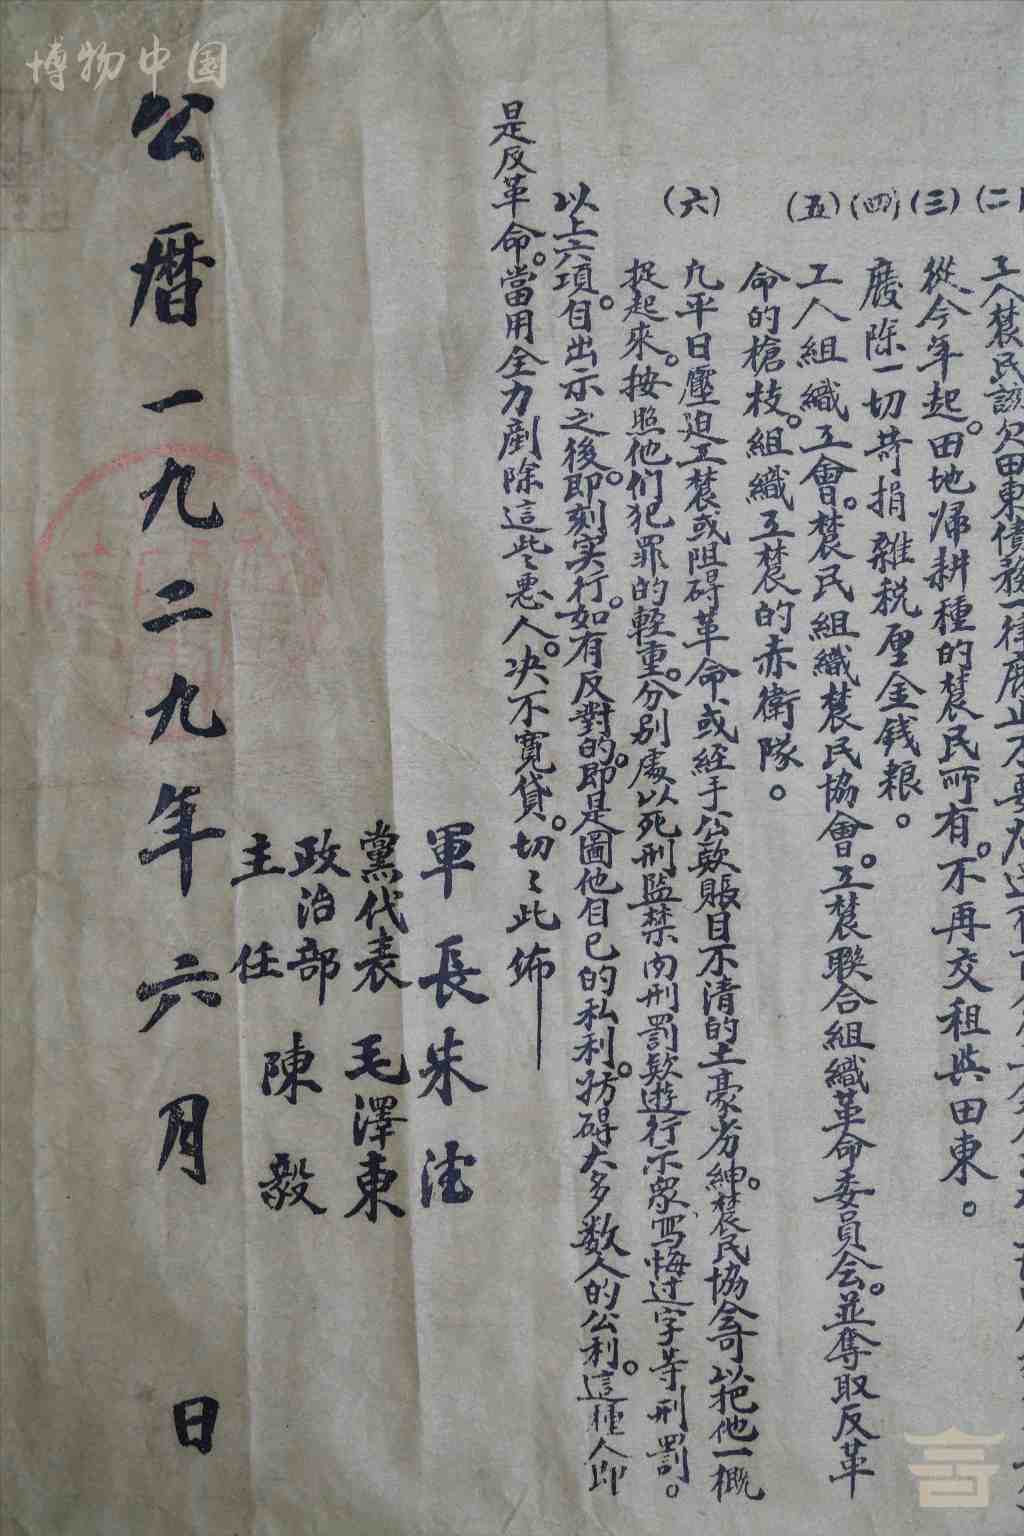 博物中国
(二)
工人農民該欠田東債務一律廢止不要
(三)
從今年起。田地歸耕種的農民所有。不再交租與田東。
(四)
廢除一切苛捐雜税厘金錢粮。
(五)
工人組織工會。農民組織農民協會。工農聯合組織革命委員会。並奪取反革
命的槍枝。組織工農的赤衛隊。
(六)
凡平日壓迫工農或阻碍革命或經手公款賬目不清的土豪劣紳。農民協會可以把他一概
捉起來。按照他们犯罪的輕重。分别處以死刑監禁肉刑罰款遊行示衆寫悔过字等刑罰。
以上六項。自出示之後。即刻实行。如有反對的。即是圖他自己的私利。妨碍大多数人的公利。這種人即
是反革命。當用全力剷除這些惡人。决不寬貸。切々此佈
軍長朱德
黨代表毛澤東
政治部
主任陳毅
公曆一九二九年六月 日